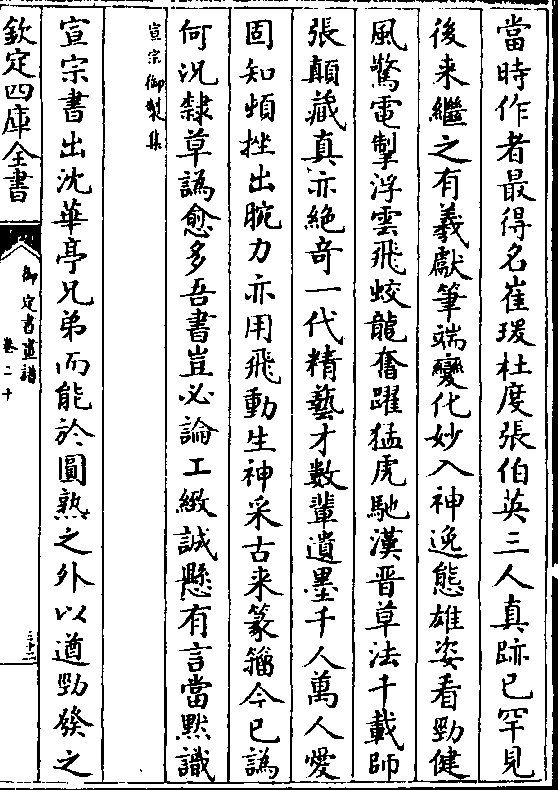 當時作者最得名崔瑗杜度張伯英三人真跡已罕見
後来繼之有羲獻筆端變化妙入神逸態雄姿看勁健
風驚電掣浮雲飛蛟龍奮躍猛虎馳漢晉草法千載師
張顛藏真亦絶奇一代精藝才數輩遺墨千人萬人愛
固知頓挫出腕力亦用飛動生神采古来篆籀今已譌
何況隸草譌愈多吾書豈必論工緻誠懸有言當黙識
宣宗御製集
宣宗書出沈華亭兄弟而能於圓熟之外以遒勁發之
欽定四庫全書
御定書畫譜
卷二十